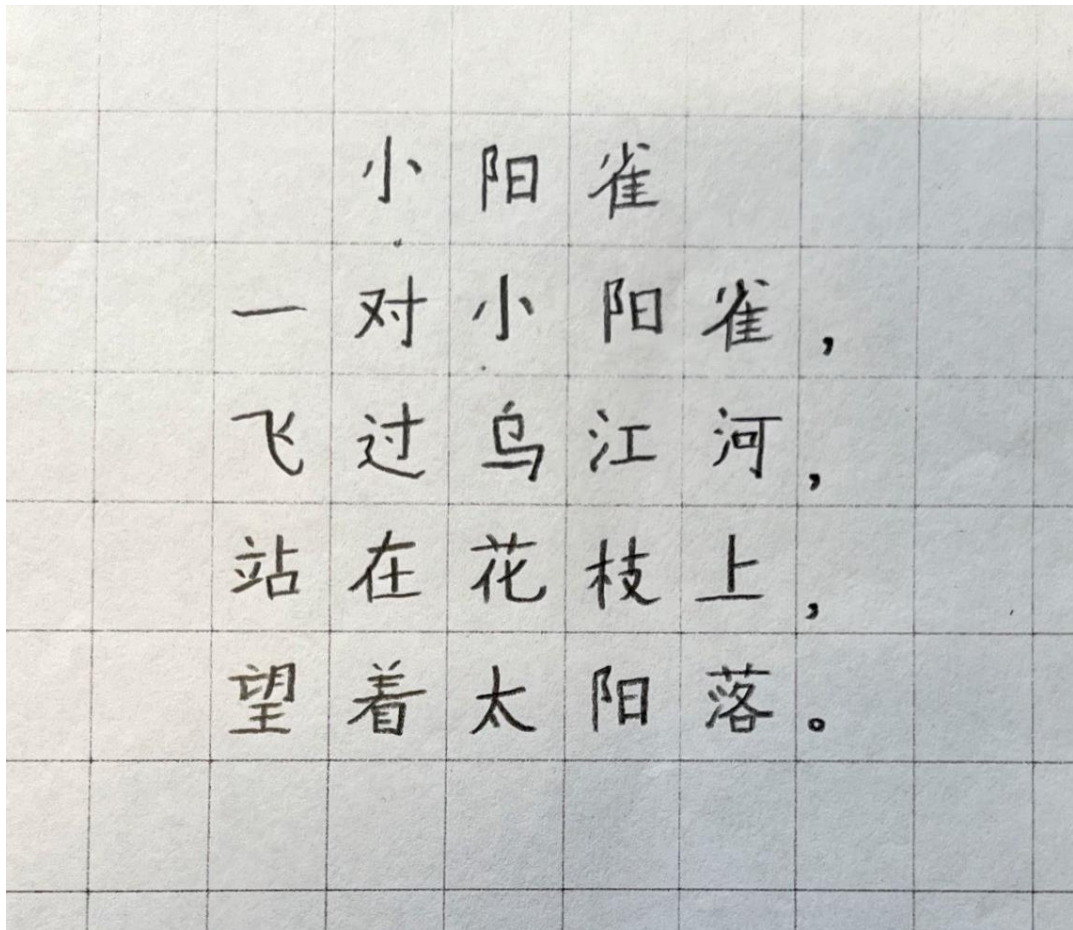 小阳雀
一对小阳雀，
飞过乌江河，
站在花枝上，
望着太阳落。